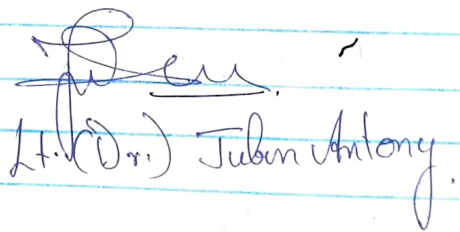 Lt. (Dr.) Jubin Antony.